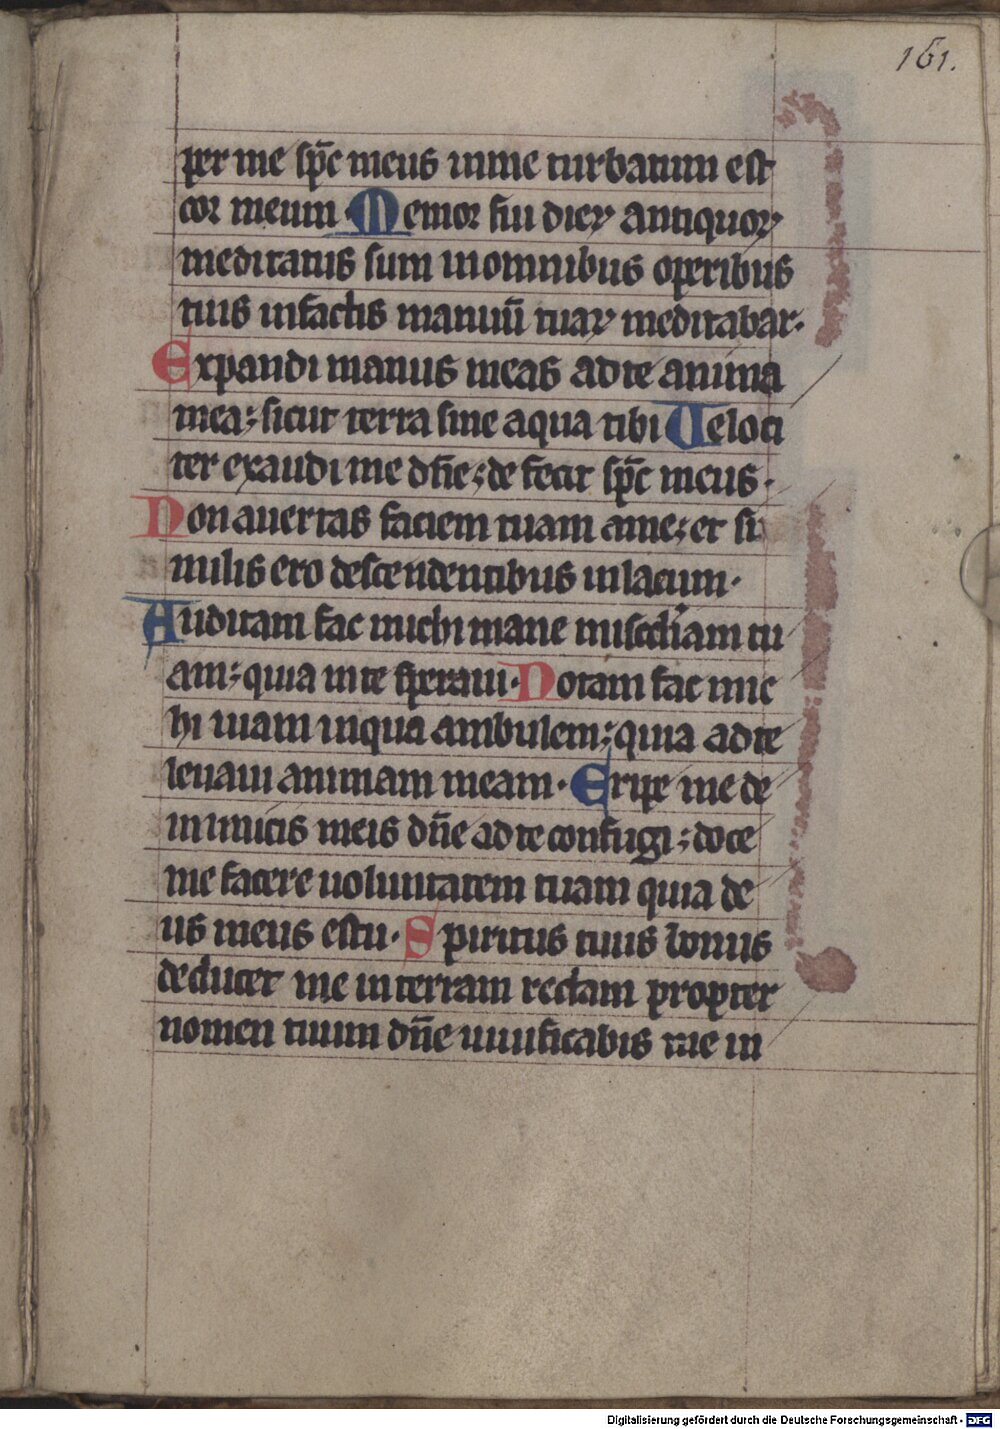 161.
per me sp̄c meus inme turbatum est
cor meum · Memor fui dieꝝ antiquoꝝ
meditatus sum inomnibus operibus
tuis infactis manuū tuaꝝ meditabar·
Expandi manus meas adte anima
mea; sicut terra sine aqua tibi Veloci
ter exaudi me dn̄e; de fecit sp̄c meus ·
Non auertas faciem tuam ame; et si
milis ero descendentibus inlacum·
Auditam fac michi mane misc̄diam tu
am; quia in te speraui· Notam fac mic
hi uiam inqua ambulem; quia adte
leuaui animam meam · Eripe me de
inimicis meis dn̄e adte confugi; doce
me facere uoluntatem tuam quia de
us meus estu · Spiritus tuus bonus
deducet me interram rectam propter
nomen tuum dn̄e uiuificabis me in
Digitalisierung gefördert durch die Deutsche Forschungsgemeinschaft - DFG